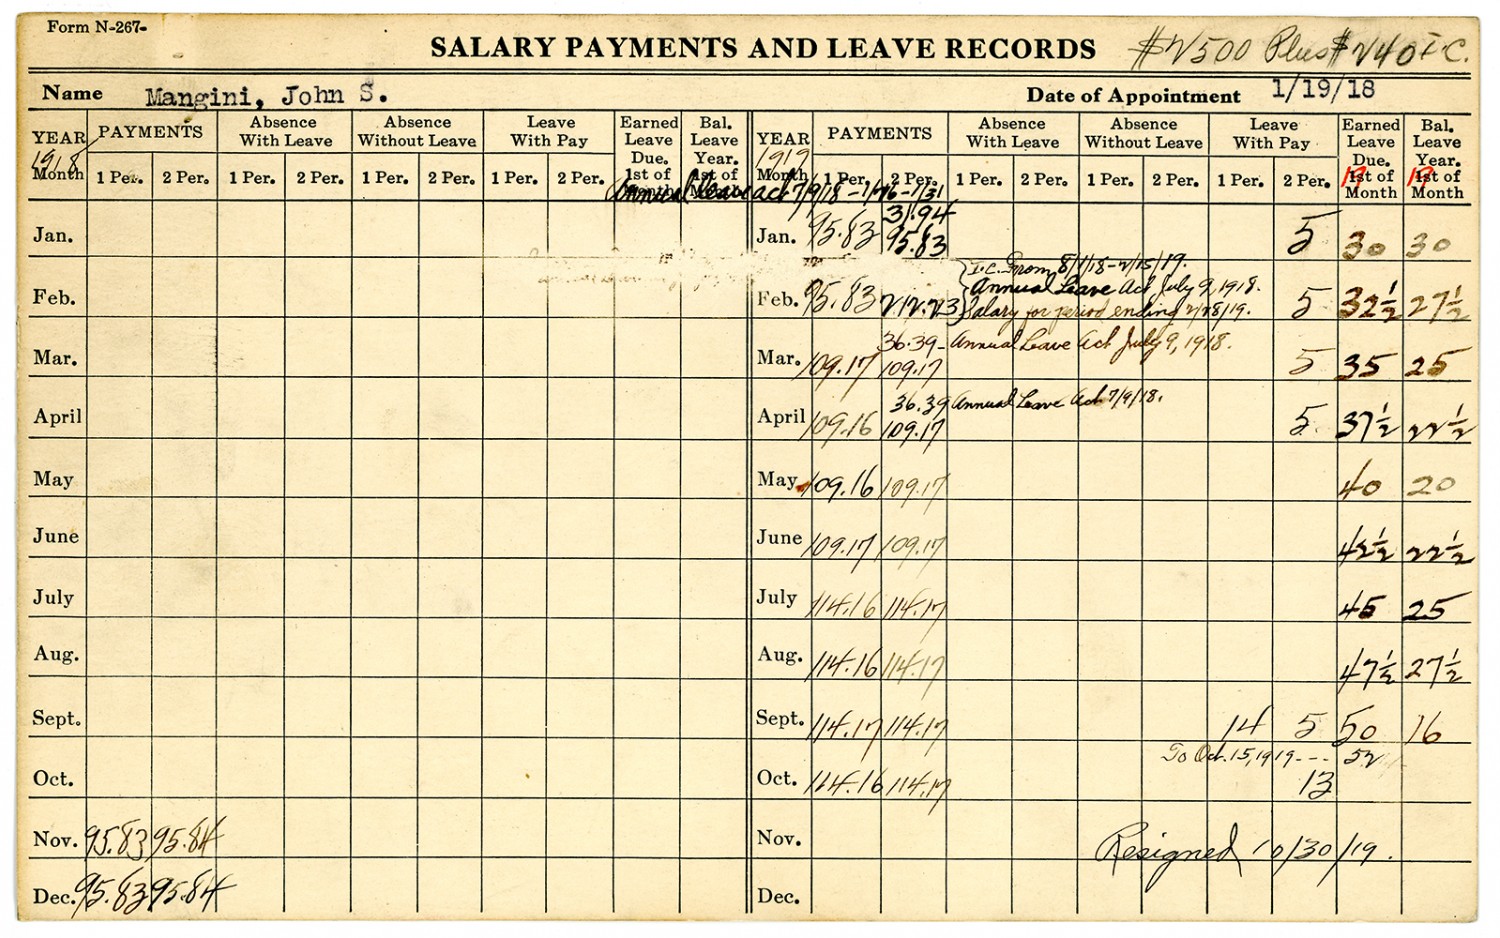 Form N-267-
SALARY PAYMENTS AND LEAVE RECORDS $2500 Plus $240 I.C.
Name Mangini, John S. Date of Appointment 1/19/18
YEAR 1918 Month PAYMENTS 1 Per. 2 Per. Absence With Leave 1 Per. 2 Per. Absence Without Leave 1 Per. 2 Per. Leave With Pay 1 Per. 2 Per. Earned Leave Due. 1st of Month Bal. Leave Year. 1st of Month
YEAR 1919 Month PAYMENTS 1 Per. 2 Per. Absence With Leave 1 Per. 2 Per. Absence Without Leave 1 Per. 2 Per. Leave With Pay 1 Per. 2 Per. Earned Leave Due. 1st of Month Bal. Leave Year. 1st of Month
Annual Leave act 7/9/18 - 1/16 - 1/31
31.94
Jan. Jan. 95.83 95.83 5 30 30
I.C. From 8/1/18-2/15/19.
Annual Leave Act July 9, 1918.
Feb. Feb. 95.83 212.23 Salary for period ending 2/28/19. 5 32½ 27½
36.39- Annual Leave Act July 9, 1918.
Mar. Mar. 109.17 109.17 5 35 25
36.39 Annual Leave Act 7/9/18.
April April 109.16 109.17 5 37½ 22½
May May 109.16 109.17 40 20
June June 109.17 109.17 42½ 22½
July July 114.16 114.17 45 25
Aug. Aug. 114.16 114.17 47½ 27½
Sept. Sept. 114.17 114.17 14 5 50 16
To Oct. 15, 1919 --- 52
Oct. Oct. 114.16 114.17 13
Nov. 95.83 95.84 Nov. Resigned 10/30/19.
Dec. 95.83 95.84 Dec.